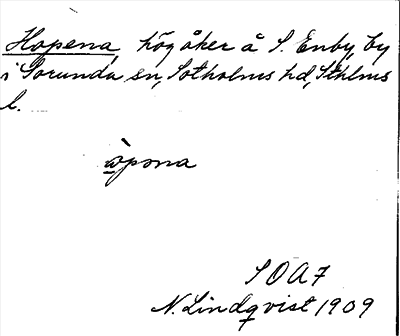 Hopena, högåker å S. Enby, by
i Sorunda sn, Sotholms hd, Sthlms
l.
òpona
SOA7
N. Lindqvist 1909